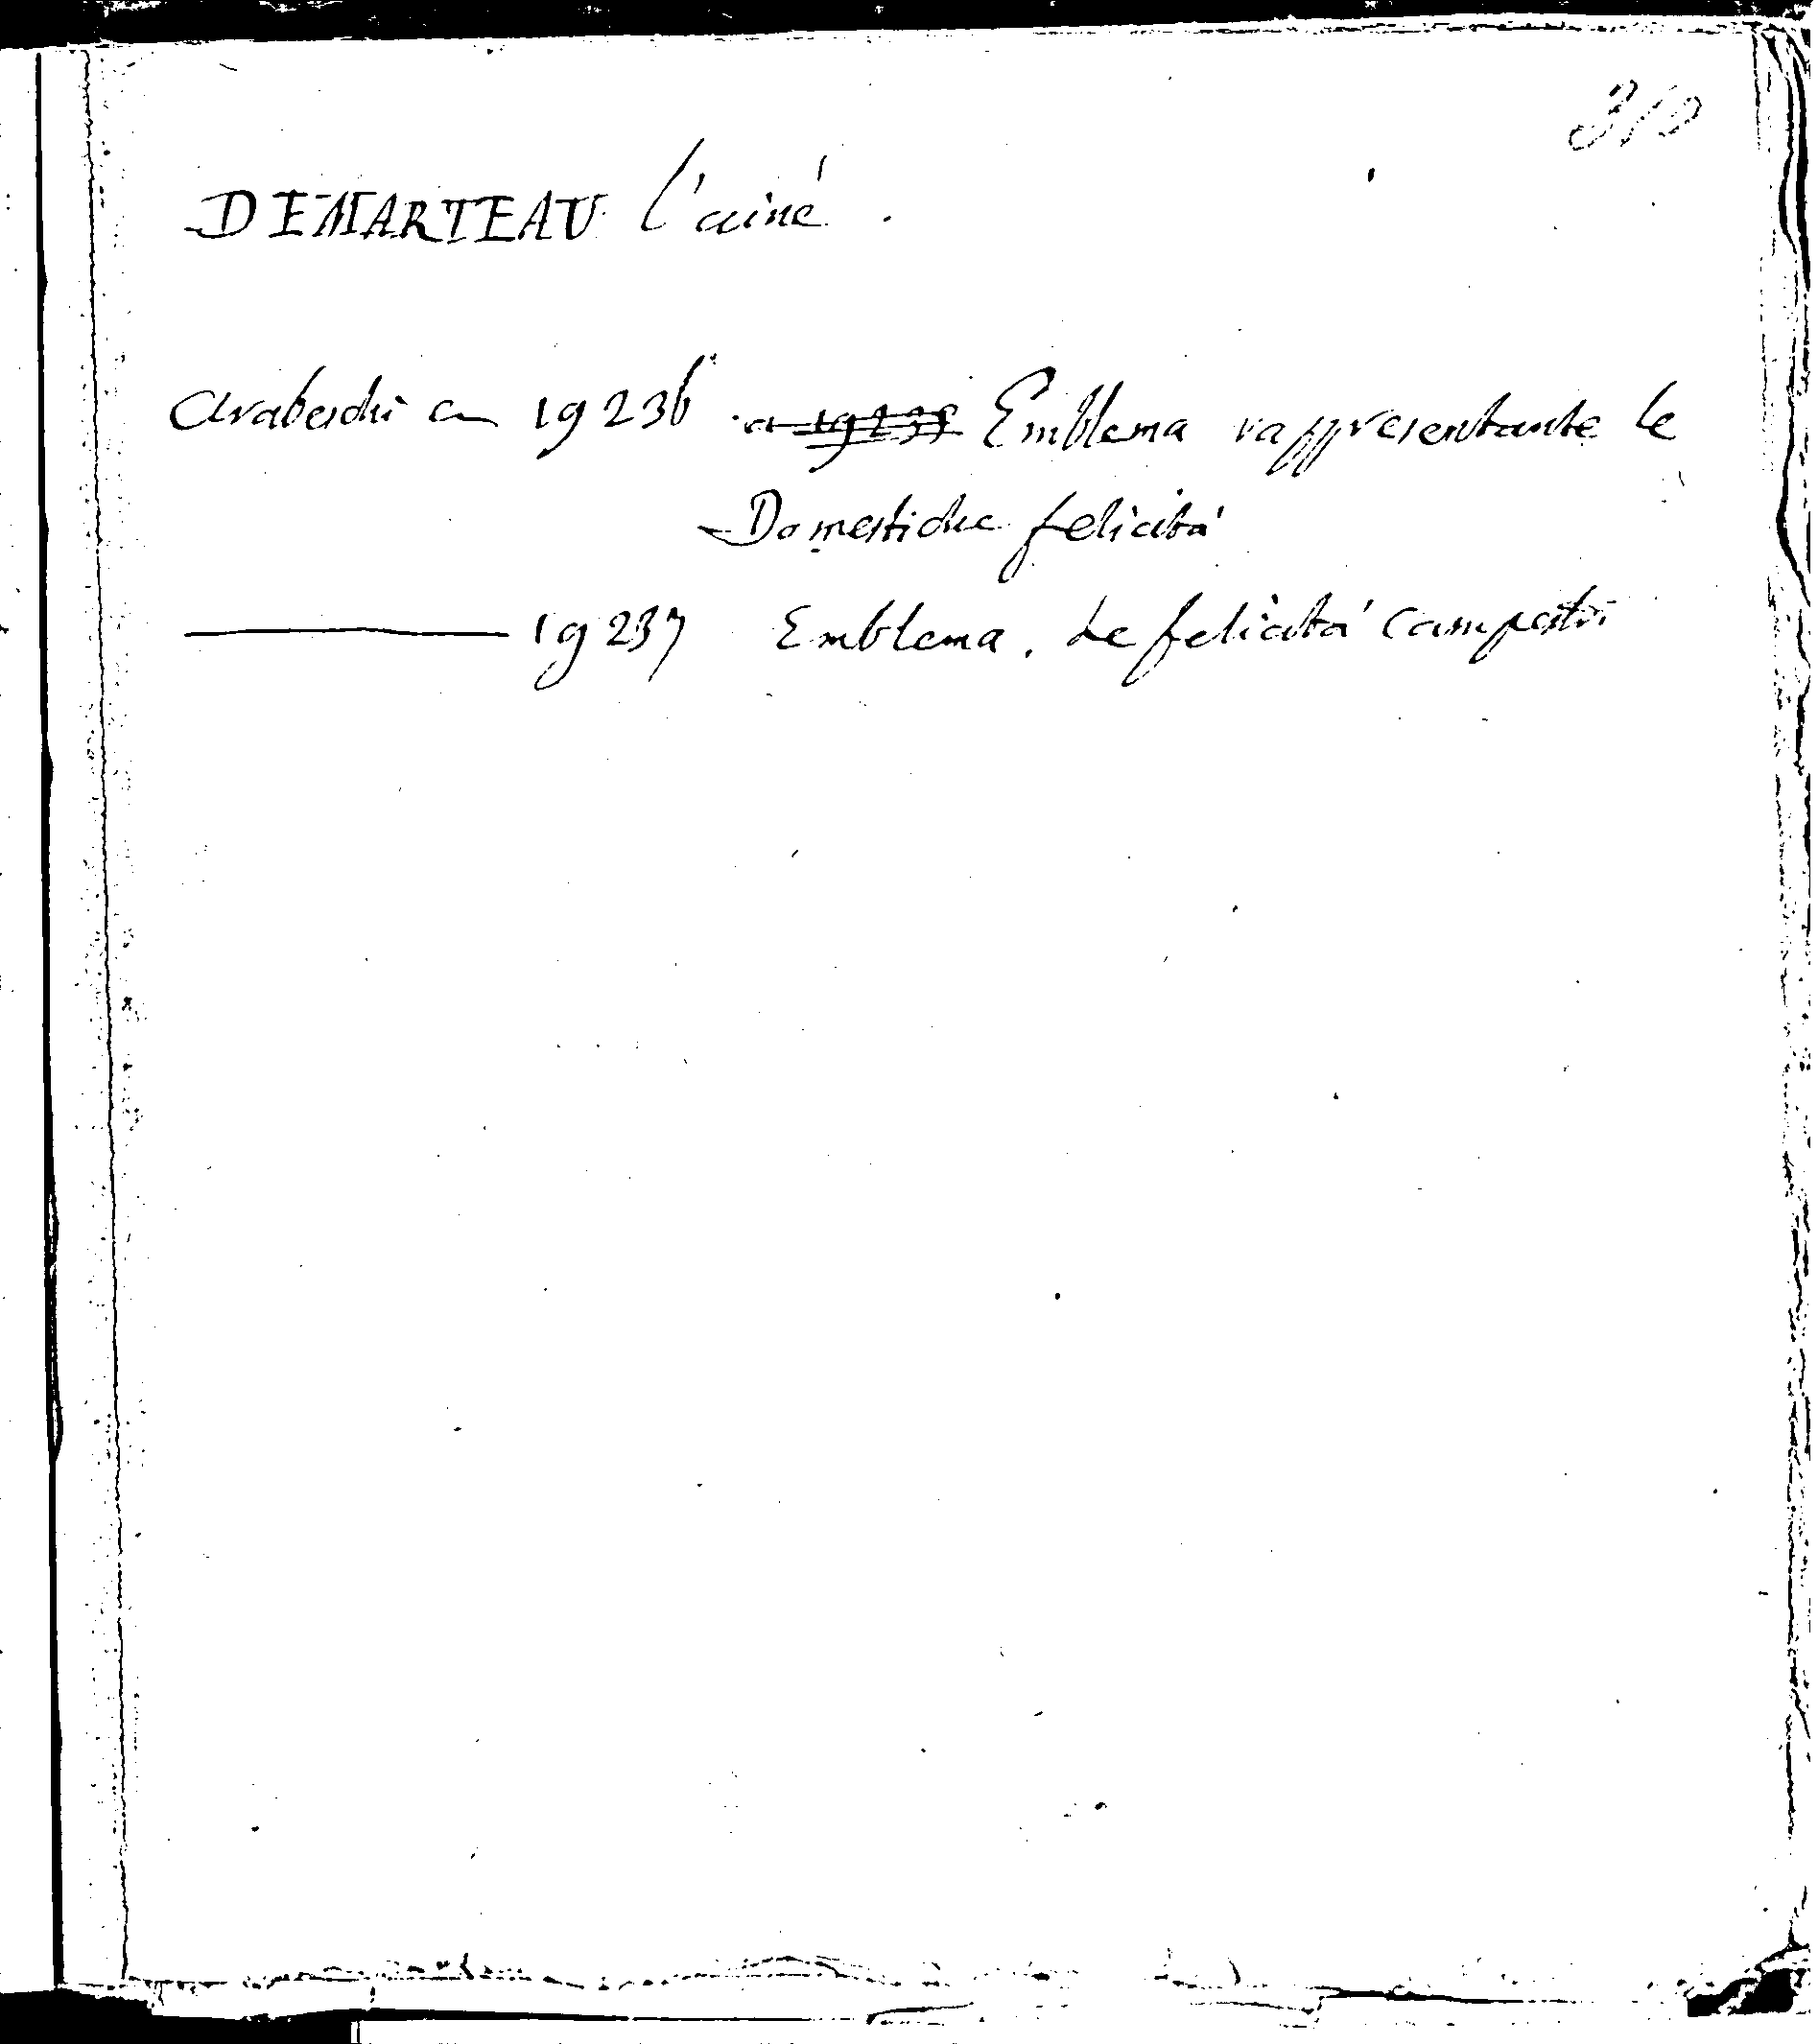 310
DEMARTEAU l'ainé.
Arabeschi 19236 a 19238 Emblema rappresentante le
Domestiche felicitá
19237 Emblema. Le felicitá Campestri